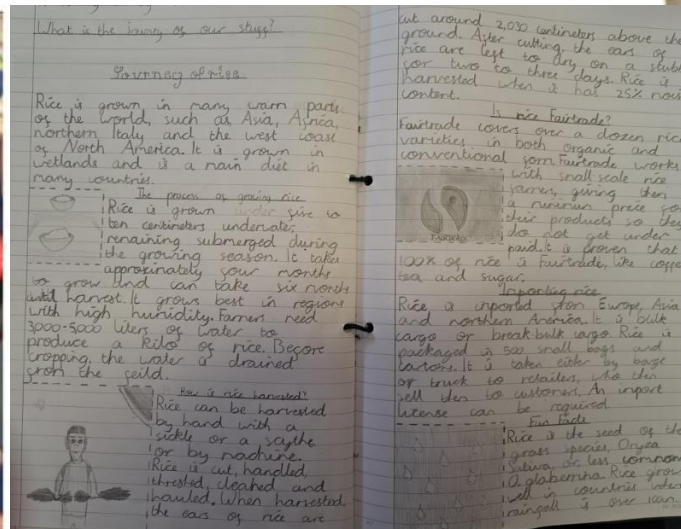 What is the journey of our stuff?
Journey of rice
Rice is grown in many warm parts
of the world, such as Asia, Africa,
northern Italy and the west coast
of North America. It is grown in
wetlands and is a main diet in
many countries.
The process of growing rice
Rice is grown under five to
ten centimeters underwater,
remaining submerged during
the growing season. It takes
approximately four months
to grow and can take six months
until harvest. It grows best in regions
with high humidity. Farmers need
3000-5000 liters of water to
produce a kilo of rice. Before
cropping, the water is drained
from the feild.
How is rice harvested?
Rice can be harvested
by hand with a
sickle or a scythe
or by machine.
Rice is cut, handled,
threshed, cleaned and
hauled. When harvested,
the ears of rice are
cut around 2,030 centimeters above the
ground. After cutting, the ears of
rice are left to dry on a stubble
for two to three days. Rice is
harvested when it has 25% mois
content.
Is rice Fairtrade?
Fairtrade covers over a dozen rice
varieties in both organic and
conventional form. Fairtrade works
with small scale rice
farmers, giving them
a minimum price for
their products so they
do not get under
paid. It is proven that
100% of rice is Fairtrade, like coffee
tea and sugar.
FAIRTRADE
Importing rice
Rice is imported from Europe, Asia
and northern America. It is bulk
cargo or break bulk cargo. Rice is
packaged in 500 small bags and
cartons. It is taken either by barge
or truck to retailers, who then
sell them to customers. An import
license can be required
Fun Facts
Rice is the seed of the
grass species, Oryza
Sativa, or less common
O. glaberrima. Rice grow
well in countries where
rainfall is over